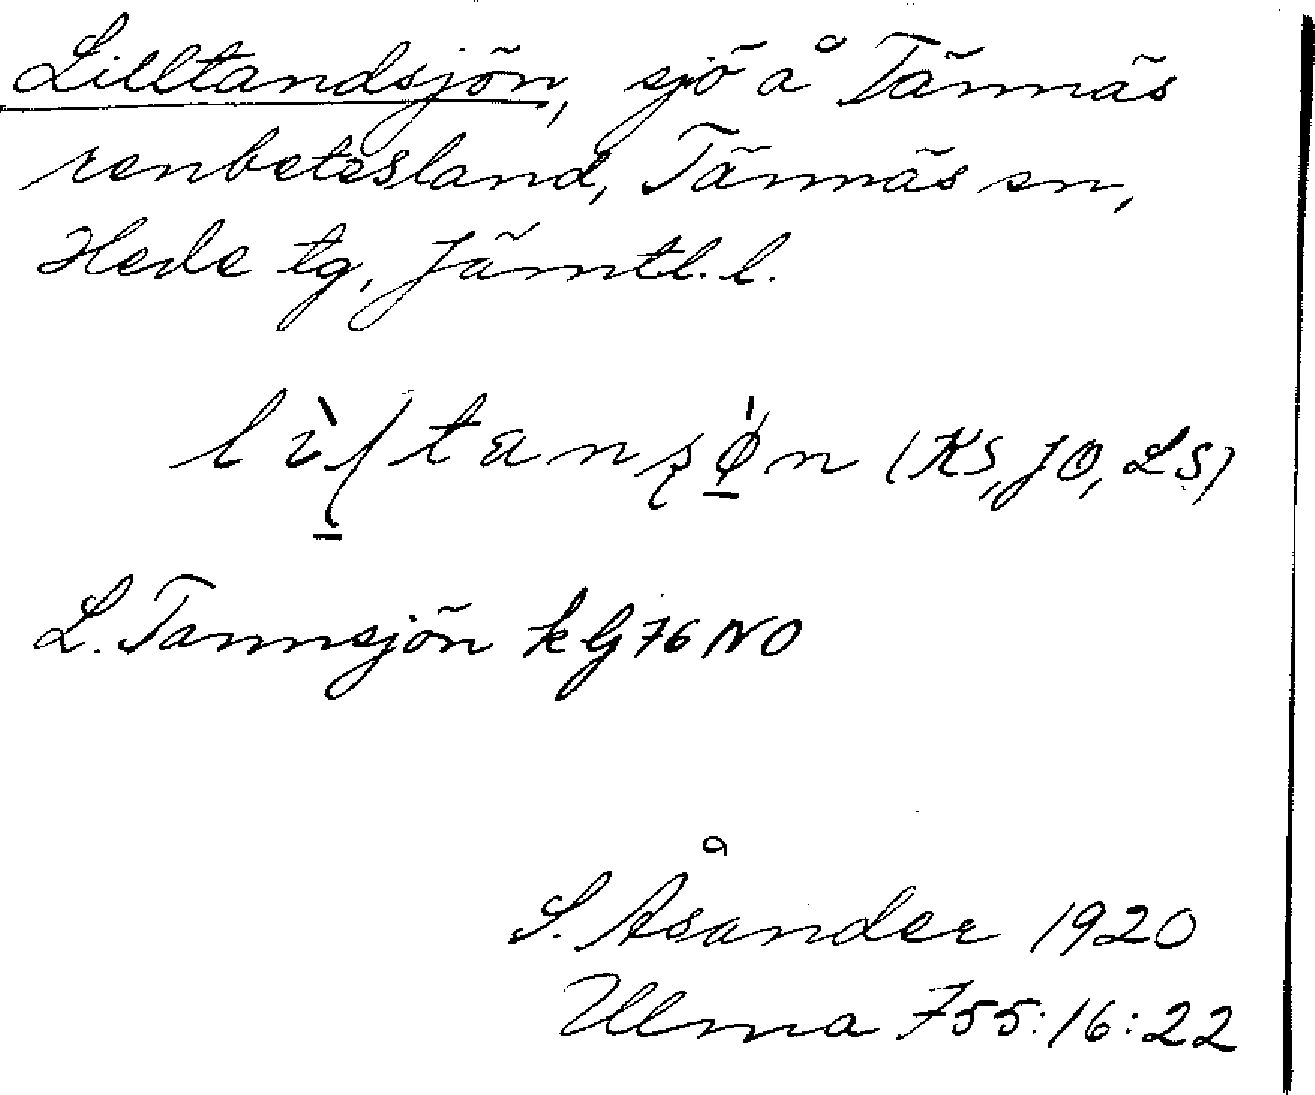 Lilltandsjön, sjö å Tännäs
renbetesland, Tännäs sn,
Hede tg, Jämtl. l.
(KS, JO, LS)
L. Tannsjön kG76NO
S. Åsander 1920
Ulma 755:16:22